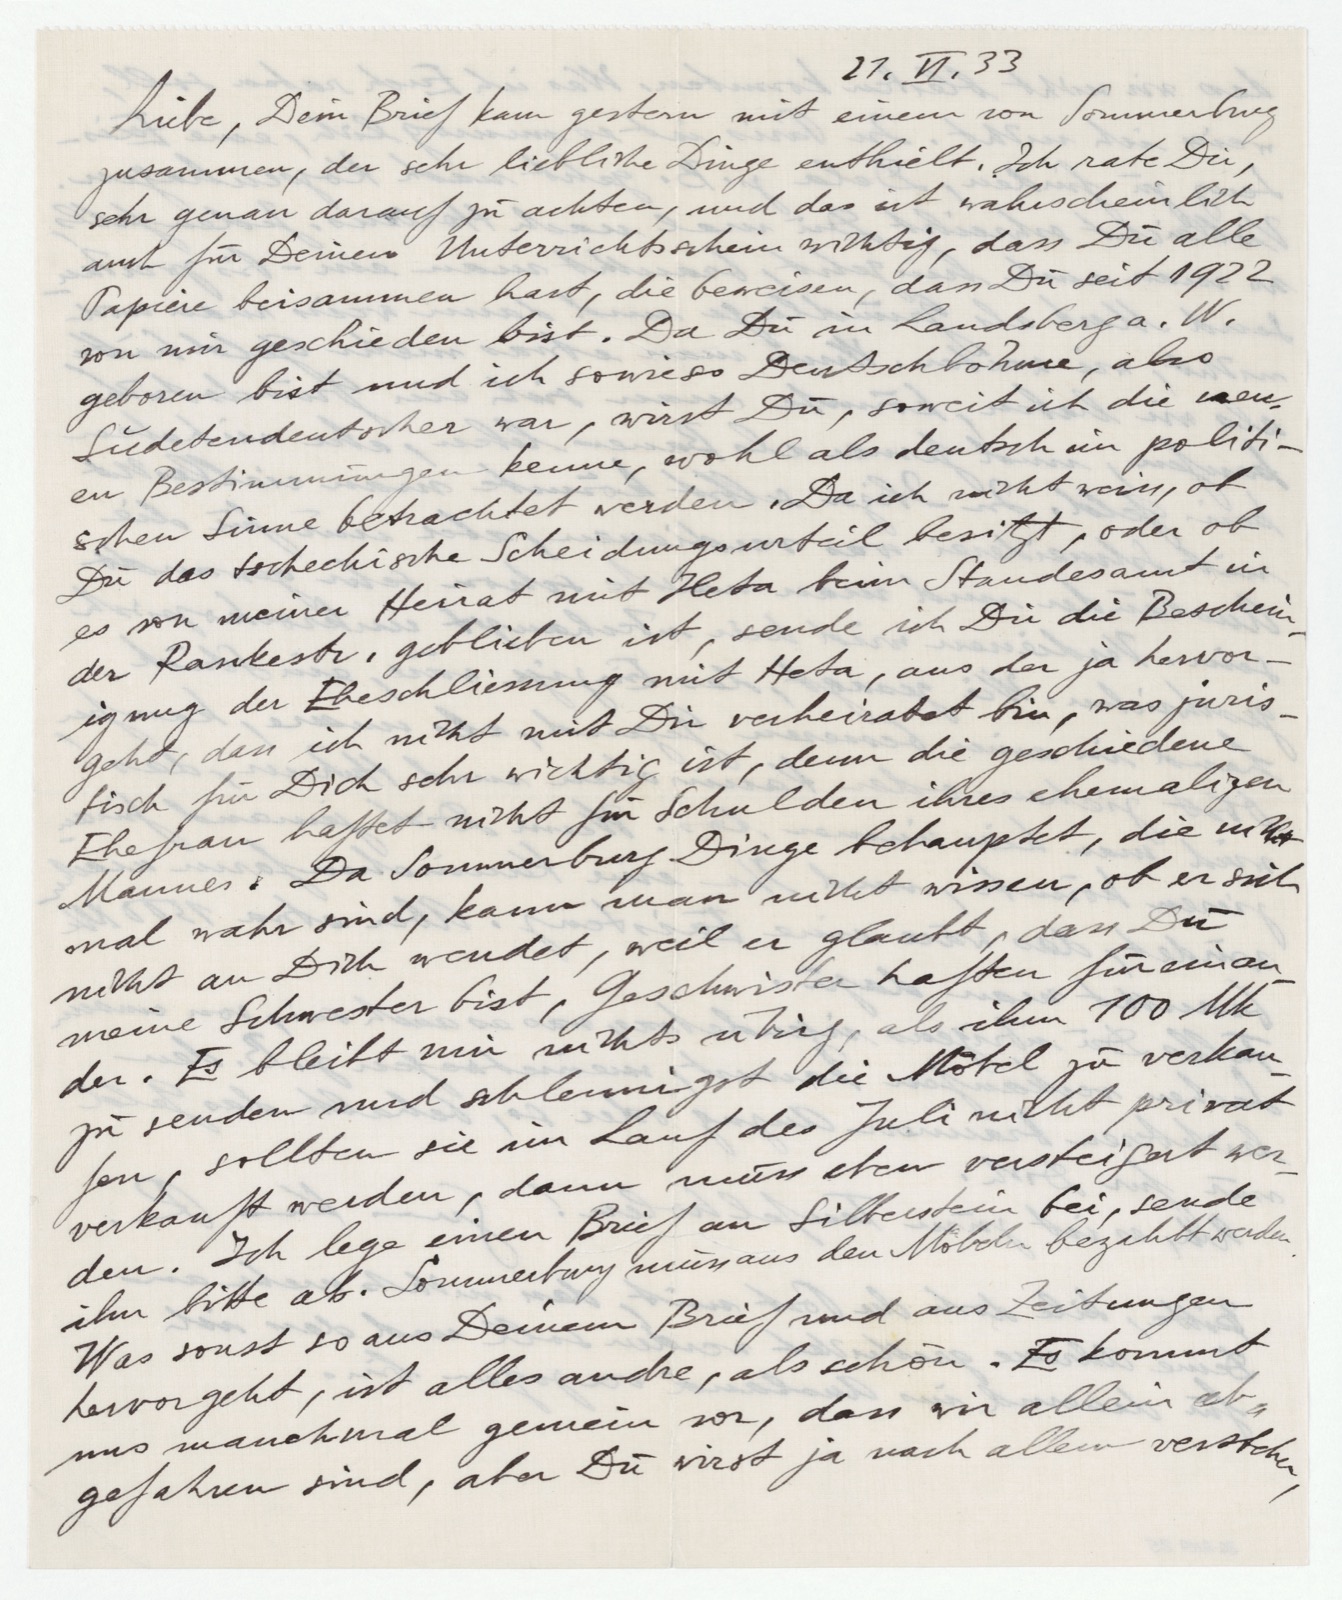 21. VI. 33
Liebe, Dein Brief kam gestern mit einem von Sommerburg
zusammen, der sehr liebliche Dinge enthielt. Ich rate Dir,
sehr genau darauf zu achten, und das ist wahrscheinlich
auch für Deinen Unterrichtsschein wichtig, dass Du alle
Papiere beisammen hast, die beweisen, dass Du seit 1922
von mir geschieden bist. Da Du in Landsberg a. W.
geboren bist und ich sowieso Deutschböhme, also
Sudetendeutscher war, wirst Du, soweit ich die neu-
en Bestimmungen kenne, wohl als deutsch im politi-
schen Sinne betrachtet werden. Da ich nicht weiss, ob
Du das tschechische Scheidungsurteil besitzt, oder ob
es von meiner Heirat mit Heta beim Standesamt in
der Rankestr. geblieben ist, sende ich Dir die Beschein-
igung der Eheschliessung mit Heta, aus der ja hervor-
geht, dass ich nicht mit Dir verheiratet bin, was juris-
tisch für Dich sehr wichtig ist, denn die geschiedene
Ehefrau haftet nicht für Schulden ihres ehemaligen
Mannes. Da Sommerburg Dinge behauptet, die nicht
mal wahr sind, kann man nicht wissen, ob er sich
nicht an Dich wendet, weil er glaubt, dass Du
meine Schwester bist, Geschwister haften für einan-
der. Es bleibt mir nichts übrig, als ihm 100 Mk
zu senden und schleunigst die Möbel zu verkau-
fen, sollten sie im Lauf des Juli nicht privat
verkauft werden, dann muss eben versteigert wer-
den. Ich lege einen Brief an Silberstein bei, sende
ihn bitte ab. Sommerburg muss aus den Möbeln bezahlt werden.
Was sonst so aus Deinem Brief und aus Zeitungen
hervorgeht, ist alles andre, als schön. Es kommt
uns manchmal gemein vor, dass wir allein ab-
gefahren sind, aber Du wirst ja nach allem verstehen,